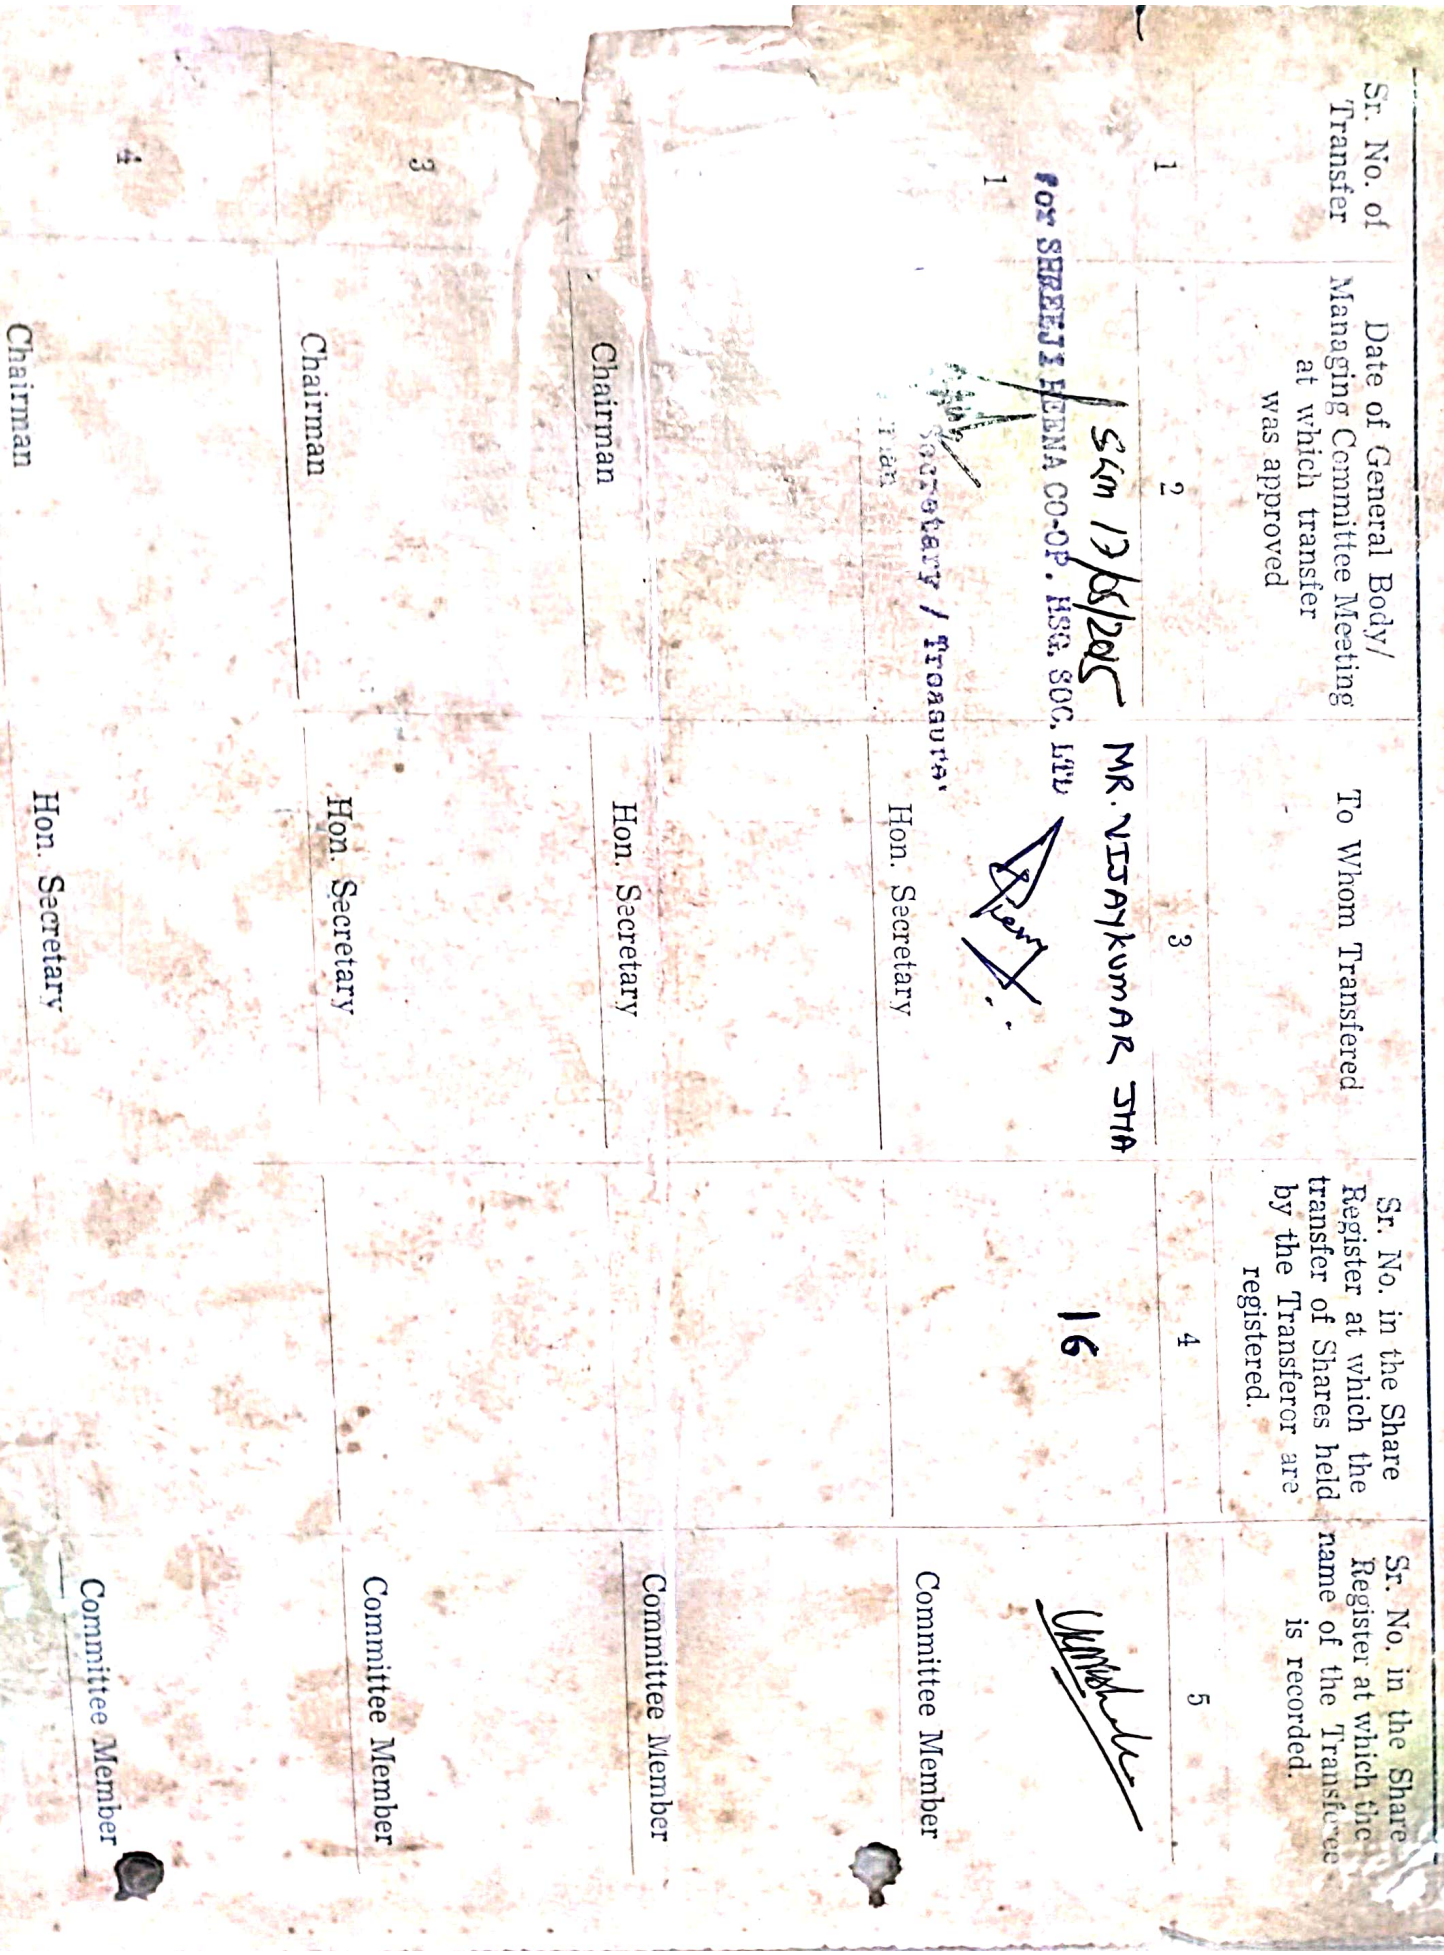 Sr. No. of
Transfer
Date of General Body/
Managing Committee Meeting
at which transfer
was approved
To Whom Transfered
Sr. No. in the Share
Register at which the
transfer of Shares held
by the Transferor are
registered.
Sr. No. in the Share
Register at which the
name of the Transferee
is recorded.
1 2 3 4 5
17/05/2015 MR. VIJAYKUMAR JHA
16
For SHREEJI HEENA CO-OP. HSG. SOC. LTD
1
Secretary / Treasurer
Hon. Secretary Committee Member
Chairman Hon. Secretary Committee Member
3
Chairman Hon. Secretary Committee Member
4
Chairman Hon. Secretary Committee Member